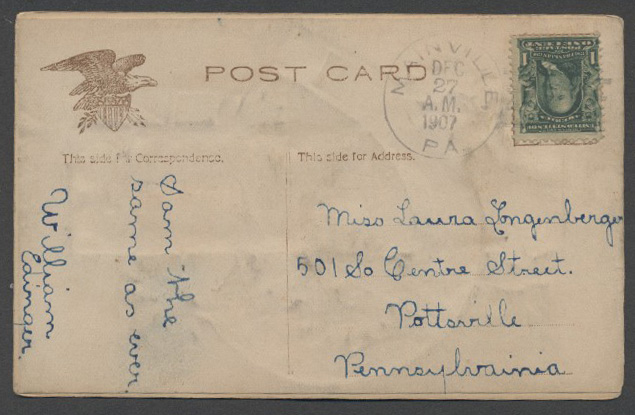 POST CARD
DEC
27
A.M.
1907
PA.
This side for Correspondence.
This side for Address.
I am the
same as ever
William
Miss Laura Longenberger
501 So Centre Street.
Pottsville
Pennsylvainia